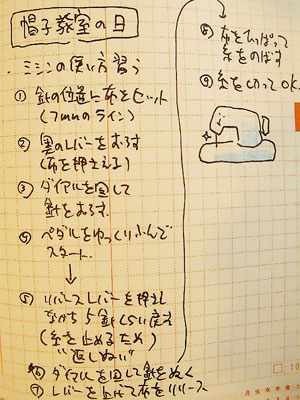 帽子教室の日
・ミシンの使い方習う
① 針の位置に布をセット
(7mmのライン)
② 黒のレバーをおろす
(布を押える)
③ ダイアルを回して
針をおろす.
④ ペダルをゆっくりふんで
スタート.
↓
⑤ リバースレバーを押え
ながら5針くらい戻る
(糸を止めるため)
"返しぬい"
⑥ ダイアルを回して針をぬく
⑦ レバーを上げて布をリリース
⑧ 布をひっぱって
糸をのばす
⑨ 糸を切ってOK.
10
月火水木金土